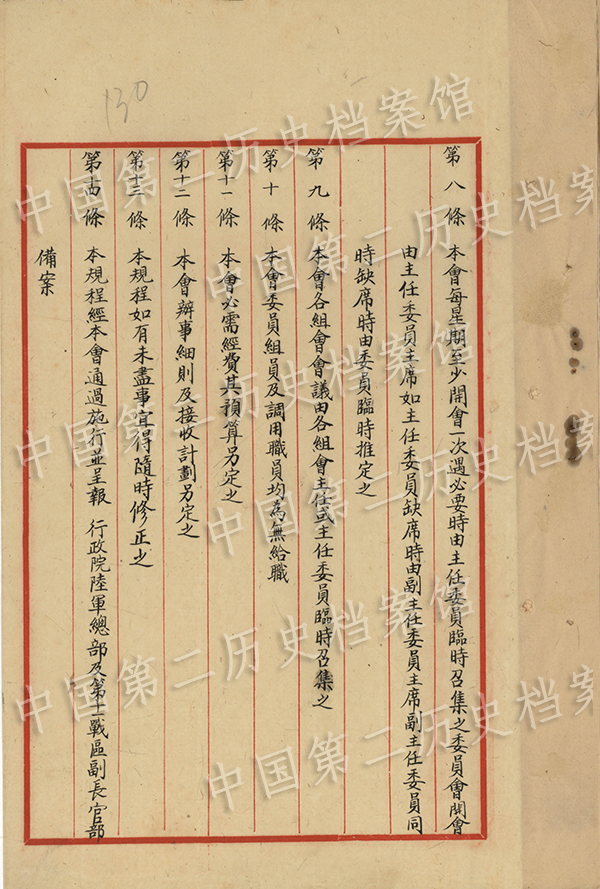 130
第八條 本會每星期至少開會一次遇必要時由主任委員臨時召集之委員會開會
由主任委員主席如主任委員缺席時由副主任委員主席副主任委員同
時缺席時由委員臨時推定之
第九條 本會各組會會議由各組會主任或主任委員臨時召集之
第十條 本會委員組員及調用職員均為無給職
第十一條 本會必需經費其預算另定之
第十二條 本會辦事細則及接收計劃另定之
第十三條 本規程如有未盡事宜得隨時修正之
第十四條 本規程經本會通過施行並呈報 行政院陸軍總部及第十一戰區副長官部
備案
中国第二历史档案馆
中国第二历史档案馆
中国第二历史档案馆
中国第二历史档案馆
中国第二历史档案馆
中国第二历史档案馆